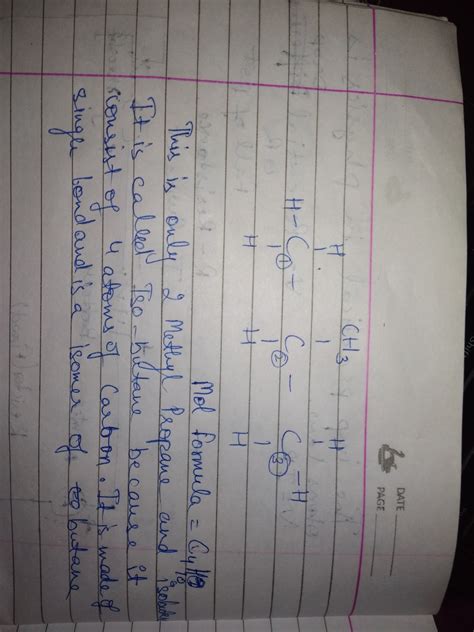 DATE
PAGE
H CH3 H
H-C + C - C-H
1 2 3
H H H
Mol formula = C4H10
This is only 2 Methyl Propane and
It is called Iso-butane because it
consist of 4 atoms of Carbon. It is made of
single bond and is a isomer of butane